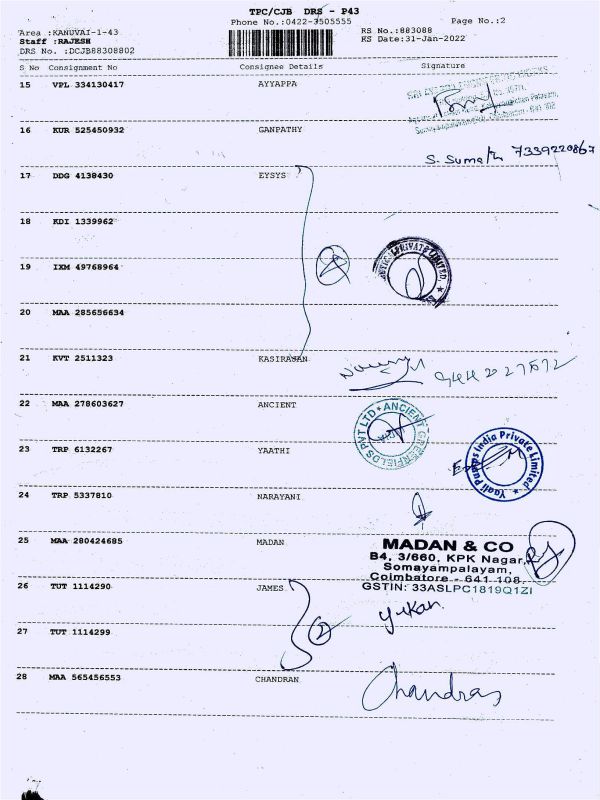 TPC/CJB DRS - P43
Phone No.:0422-3505555
Page No.:2
Area :KANUVAI-1-43
RS No.:883088
Staff :RAJESH
KS Date:31-Jan-2022
DRS No. :DCJB88308802
S No Consignment No Consignee Details Signature
15 VPL 334130417 AYYAPPA
16 KUR 525450932 GANPATHY
S. Sumathi 7339220867
17 DDG 4138430 EYSYS
18 KDI 1339962
19 IXM 49768964
PRIVATE LIMITED
20 MAA 285656634
21 KVT 2511323 KASIRAJAN
22 MAA 278603627 ANCIENT
ANCIENT GREENFIELDS PVT LTD
23 TRP 6132267 YAATHI
Yaali Pumps India Private Limited
24 TRP 5337810 NARAYANI
25 MAA 280424685 MADAN
MADAN & CO
B4, 3/660, KPK Nagar,
Somayampalayam,
Coimbatore - 641 108.
GSTIN: 33ASLPC1819Q1ZI
26 TUT 1114290 JAMES
27 TUT 1114299
2
28 MAA 565456553 CHANDRAN
Chandran